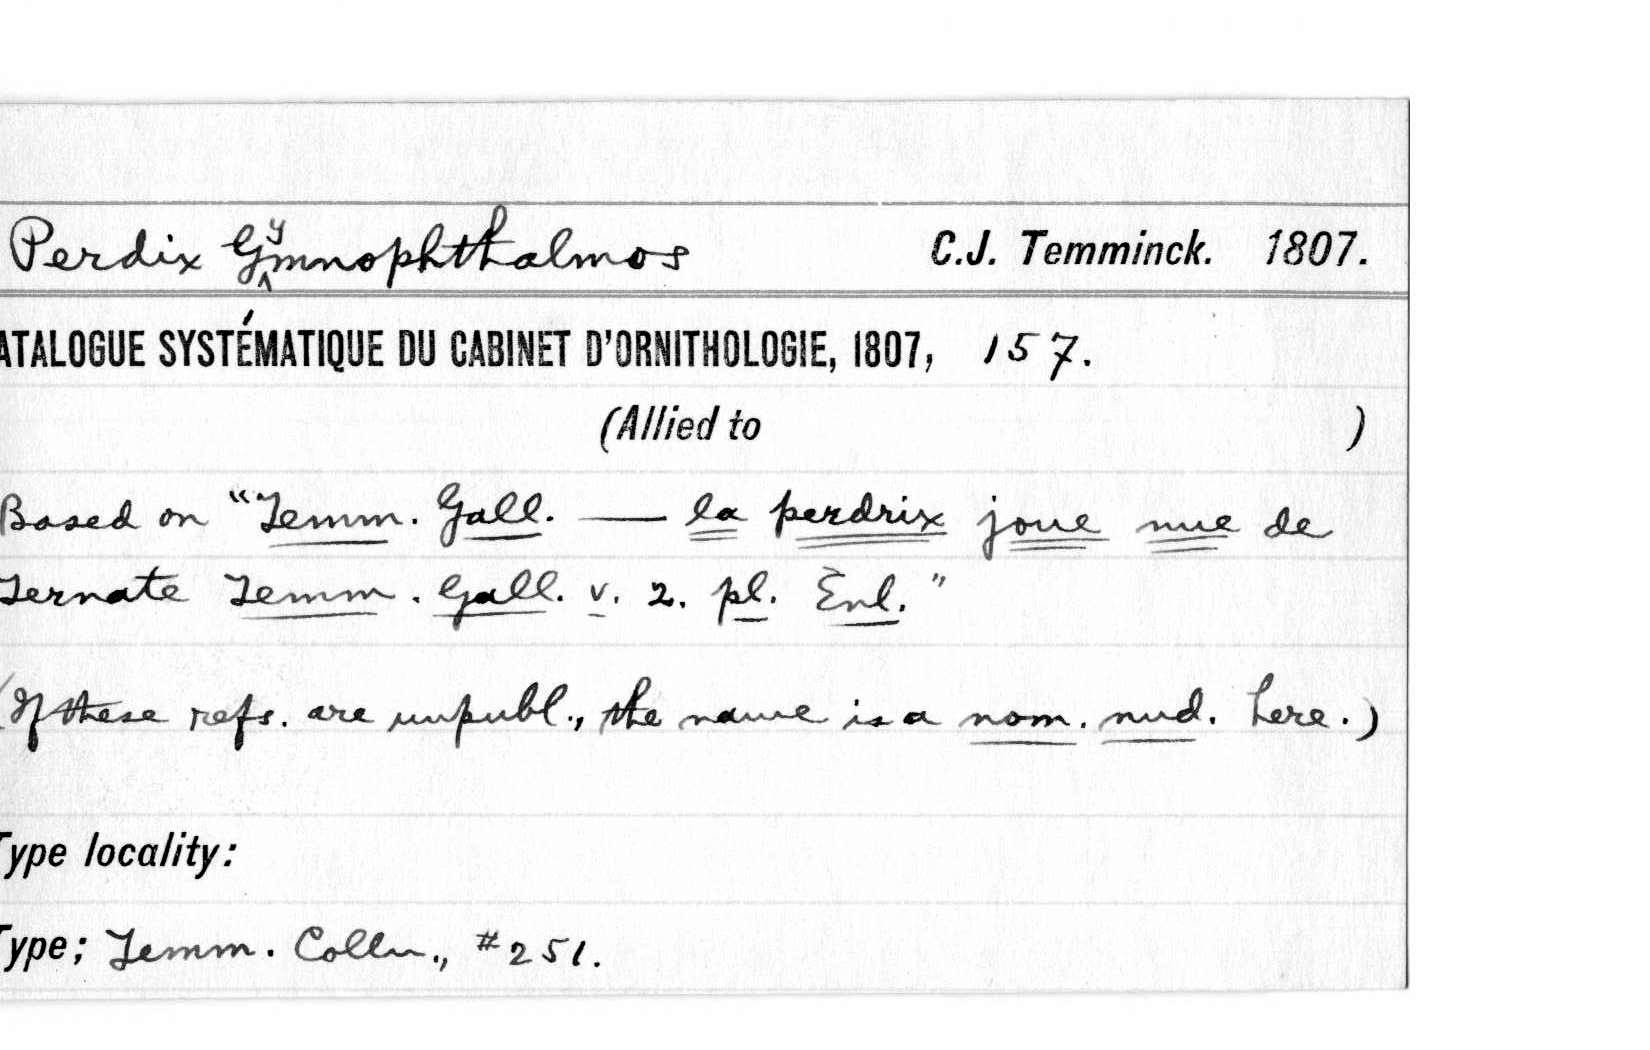 Perdix Gymnophthalmos C.J. Temminck. 1807.
ATALOGUE SYSTÉMATIQUE DU CABINET D'ORNITHOLOGIE, 1807, 157.
(Allied to )
Based on "Temm. Gall. — la perdrix joue nue de
Ternate Temm. Gall. v. 2. pl. Enl."
(If these refs. are unpubl., the name is a nom. nud. here.)
Type locality:
Type; Temm. Colln., #251.